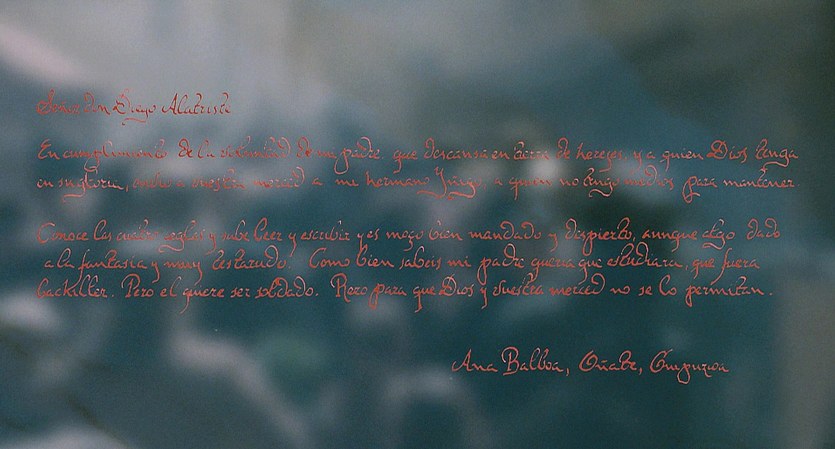 Señor Don Diego Alatriste
En cumplimiento de la voluntad de mi padre que descansa en tierra de herejes, y a quien Dios tenga
en su gloria, envio a vuestra merced a mi hermano Íñigo a quien no tengo medios para mantener.
Conoce las cuatro reglas y sabe leer y escribir y es moço bien mandado y dispierto, aunque algo dado
a la fantasia y muy testarudo. Como bien sabeis mi padre queria que estudiara, que fuera
bachiller. Pero el quiere ser soldado. Rezo para que Dios y vuestra merced no se lo permitan.
Ana Balboa, Oñate, Guipuzcoa